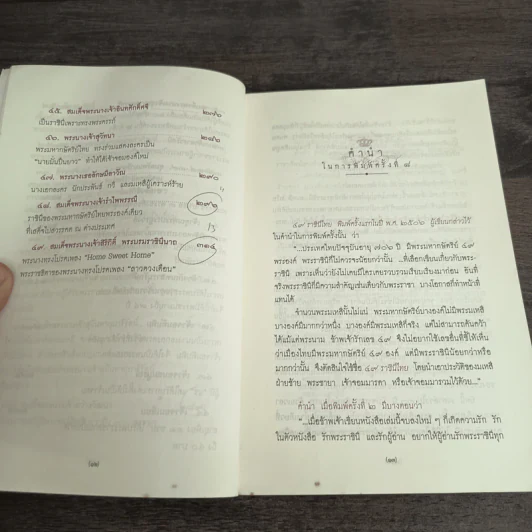 ๔๕. สมเด็จพระนางเจ้าอินทรศักดิศจี
เป็นราชินีเพราะทรงพระครรภ์
๔๖. พระนางเจ้าสุวัทนา
พระมหากษัตริย์ไทย ทรงร่วมแสดงละครเป็น
"นายมั่นปืนยาว" ทำให้ได้เจ้าจอมองค์ใหม่
๔๗. พระนางเธอลักษมีลาวัณ
๒๙๐
นางเอกละคร นักประพันธ์ กวี และเหยื่อผู้เคราะห์ร้าย
๔๘. สมเด็จพระนางเจ้ารำไพพรรณี
ราชินีของพระมหากษัตริย์ไทยพระองค์เดียว
ที่เสด็จไปสวรรคต ณ ต่างประเทศ
๔๙. สมเด็จพระนางเจ้าสิริกิติ์ พระบรมราชินีนาถ
๓๑๔
พระนางทรงโปรดเพลง "Home Sweet Home"
พระราชธิดาของพระนางทรงโปรดเพลง "ลาวดวงเดือน"
(๑๒)
คำนำ
ในการพิมพ์ครั้งที่ ๘
๔๙ ราชินีไทย พิมพ์ครั้งแรกในปี พ.ศ. ๒๕๐๖ ผู้เขียนกล่าวไว้
ในคำนำในการพิมพ์ครั้งนั้น ว่า
"...ประเทศไทยปัจจุบันอายุ ๗๐๖ ปี มีพระมหากษัตริย์ ๔๙
พระองค์ พระราชินีที่ไม่ควรจะน้อยกว่านั้น ...ที่เลือกเขียนเกี่ยวกับพระ-
ราชินี เพราะเห็นว่ายังไม่เคยมีใครเคยรวบรวมเรียบเรียงมาก่อน อันที่
จริงพระราชินีก็มีความสำคัญเช่นเดียวกับพระราชา บางโอกาสก็ทำหน้าที่
แทนได้
จำนวนพระมเหสีนั้นไม่แน่ พระมหากษัตริย์บางองค์ไม่มีพระมเหสี
บางองค์มีมากกว่าหนึ่ง บางองค์มีพระมเหสีก็จริง แต่ไม่สามารถค้นคว้า
ได้แม้แต่พระนาม ข้าพเจ้ารักเลข ๔๙ จึงไม่อยากใช้เลขอื่นที่ชี้ให้เห็น
ว่าเมืองไทยมีพระมหากษัตริย์ ๔๙ องค์ แต่มีพระราชินีน้อยกว่าหรือ
มากกว่านั้น จึงตัดสินใจใช้ชื่อ ๔๙ ราชินีไทย โดยนำเอาประวัติของมเหสี
ฝ่ายซ้าย พระชายา เจ้าจอมมารดา หรือเจ้าจอมมารวมไว้ด้วย..."
คำนำ เมื่อพิมพ์ครั้งที่ ๒ มีบางตอนว่า
"...เมื่อข้าพเจ้าเขียนหนังสือเล่มนี้จบลงใหม่ ๆ ก็เกิดความรัก รัก
ในตัวหนังสือ รักพระราชินี และรักผู้อ่าน อยากให้ผู้อ่านรักพระราชินีทุก
(๑๓)